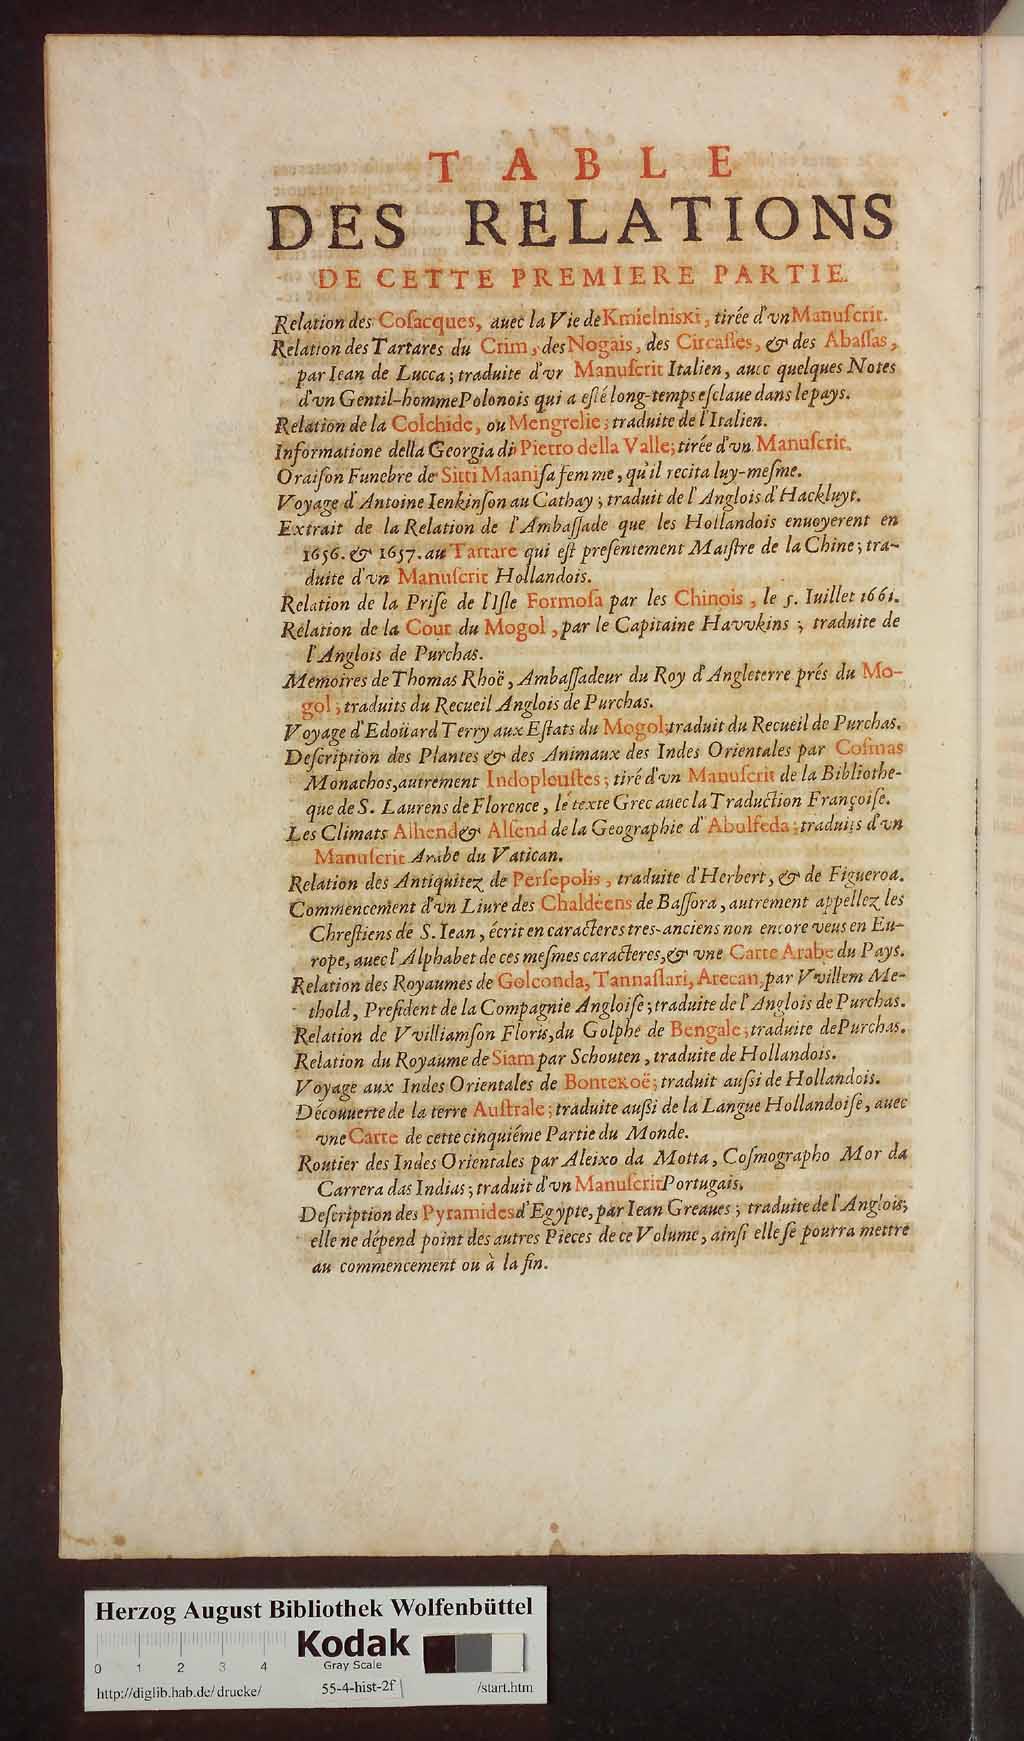 TABLE
DES RELATIONS
DE CETTE PREMIERE PARTIE.
Relation des Coſacques, auec la Vie de Kmielniski, tirée d'vn Manuſcrit.
Relation des Tartares du Crim, des Nogais, des Circaſſes, & des Abaſſas,
par Iean de Lucca; traduite d'vn Manuſcrit Italien, auec quelques Notes
d'vn Gentil-homme Polonois qui a eſté long-temps eſclaue dans le pays.
Relation de la Colchide, ou Mengrelie; traduite de l'Italien.
Informatione della Georgia di Pietro della Valle; tirée d'vn Manuſcrit.
Oraiſon Funebre de Sitti Maani ſa femme, qu'il recita luy-meſme.
Voyage d'Antoine Ienkinſon au Cathay; traduit de l'Anglois d'Hackluyt.
Extrait de la Relation de l'Ambaſſade que les Hollandois enuoyerent en
1656. & 1657. au Tartare qui eſt preſentement Maiſtre de la Chine; tra-
duite d'vn Manuſcrit Hollandois.
Relation de la Priſe de l'Iſle Formoſa par les Chinois, le 5. Iuillet 1661.
Relation de la Cour du Mogol, par le Capitaine Havvkins; traduite de
l'Anglois de Purchas.
Memoires de Thomas Rhoë, Ambaſſadeur du Roy d'Angleterre prés du Mo-
gol; traduits du Recueil Anglois de Purchas.
Voyage d'Edoüard Terry aux Eſtats du Mogol; traduit du Recueil de Purchas.
Deſcription des Plantes & des Animaux des Indes Orientales par Coſmas
Monachos, autrement Indopleuſtes; tiré d'vn Manuſcrit de la Bibliothe-
que de S. Laurens de Florence, le texte Grec auec la Traduction Françoiſe.
Les Climats Alhend & Alſend de la Geographie d'Abulfeda; traduits d'vn
Manuſcrit Arabe du Vatican.
Relation des Antiquitez de Perſepolis, traduite d'Herbert, & de Figueroa.
Commencement d'vn Liure des Chaldéens de Baſſora, autrement appellez les
Chreſtiens de S. Iean, écrit en caracteres tres-anciens non encore veus en Eu-
rope, auec l'Alphabet de ces meſmes caracteres, & vne Carte Arabe du Pays.
Relation des Royaumes de Golconda, Tannaſſari, Arecan, par Vvillem Me-
thold, Preſident de la Compagnie Angloiſe; traduite de l'Anglois de Purchas.
Relation de Vvilliamſon Floris, du Golphe de Bengale; traduite de Purchas.
Relation du Royaume de Siam par Schouten, traduite de Hollandois.
Voyage aux Indes Orientales de Bontekoë; traduit auſsi de Hollandois.
Découuerte de la terre Auſtrale; traduite auſsi de la Langue Hollandoiſe, auec
vne Carte de cette cinquiéme Partie du Monde.
Routier des Indes Orientales par Aleixo da Motta, Coſmographo Mor da
Carrera das Indias; traduit d'vn Manuſcrit Portugais.
Deſcription des Pyramides d'Egypte, par Iean Greaues; traduite de l'Anglois;
elle ne dépend point des autres Pieces de ce Volume, ainſi elle ſe pourra mettre
au commencement ou à la fin.
Herzog August Bibliothek Wolfenbüttel
Kodak
Gray Scale
0 1 2 3 4
http://diglib.hab.de/drucke/ 55-4-hist-2f /start.htm